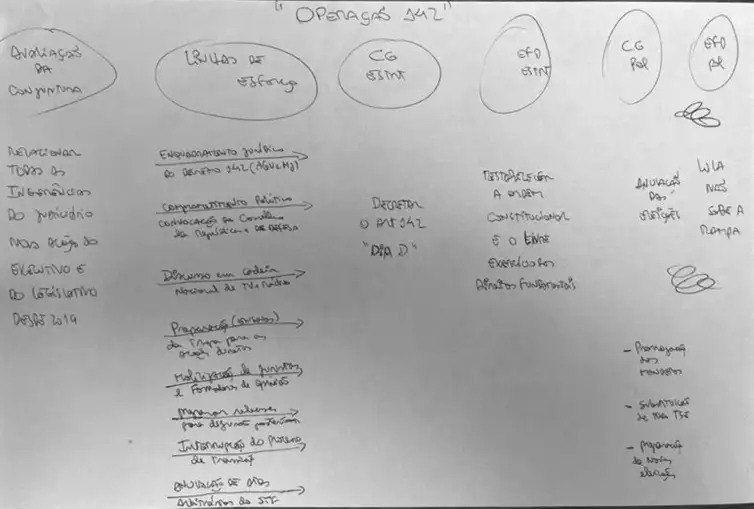 "OPERAÇÃO 142"
AVALIAÇÃO
DA
CONJUNTURA
RELACIONAR
TODAS AS
INGERÊNCIAS
DO JUDICIÁRIO
NAS AÇÃO DO
EXECUTIVO E
DO LEGISLATIVO
DESDE 2019
LINHAS DE
ESFORÇO
ENQUADRAMENTO JURÍDICO
DO DECRETO 142 (AGU e MJ)
Comprometimento Político
convocação do Conselho
da República e DA DEFESA
Discurso em cadeia
Nacional de TV e Rádio
Preparação
da Tropa para as
ações diretas
Mobilização de juristas
e Formadores de Opinião
para
Interrupção do Processo
de Transição
ANULAÇÃO DE ATOS
Arbitrários do STF
CG
ESTNT
DECRETAR
O ART 142
"DIA D"
EFD
ESTNT
RESTABELECER
A ORDEM
CONSTITUCIONAL
E O LIVRE
EXERCÍCIO DOS
DIREITOS FUNDAMENTAIS
CG
POL
ANULAÇÃO
DAS
ELEIÇÕES
- Prorrogação
dos
MANDATOS
- SUBSTITUIÇÃO
de TSE
- preparação
de Novas
eleições
EFD
POL
LULA
NÃO
SOBE A
RAMPA